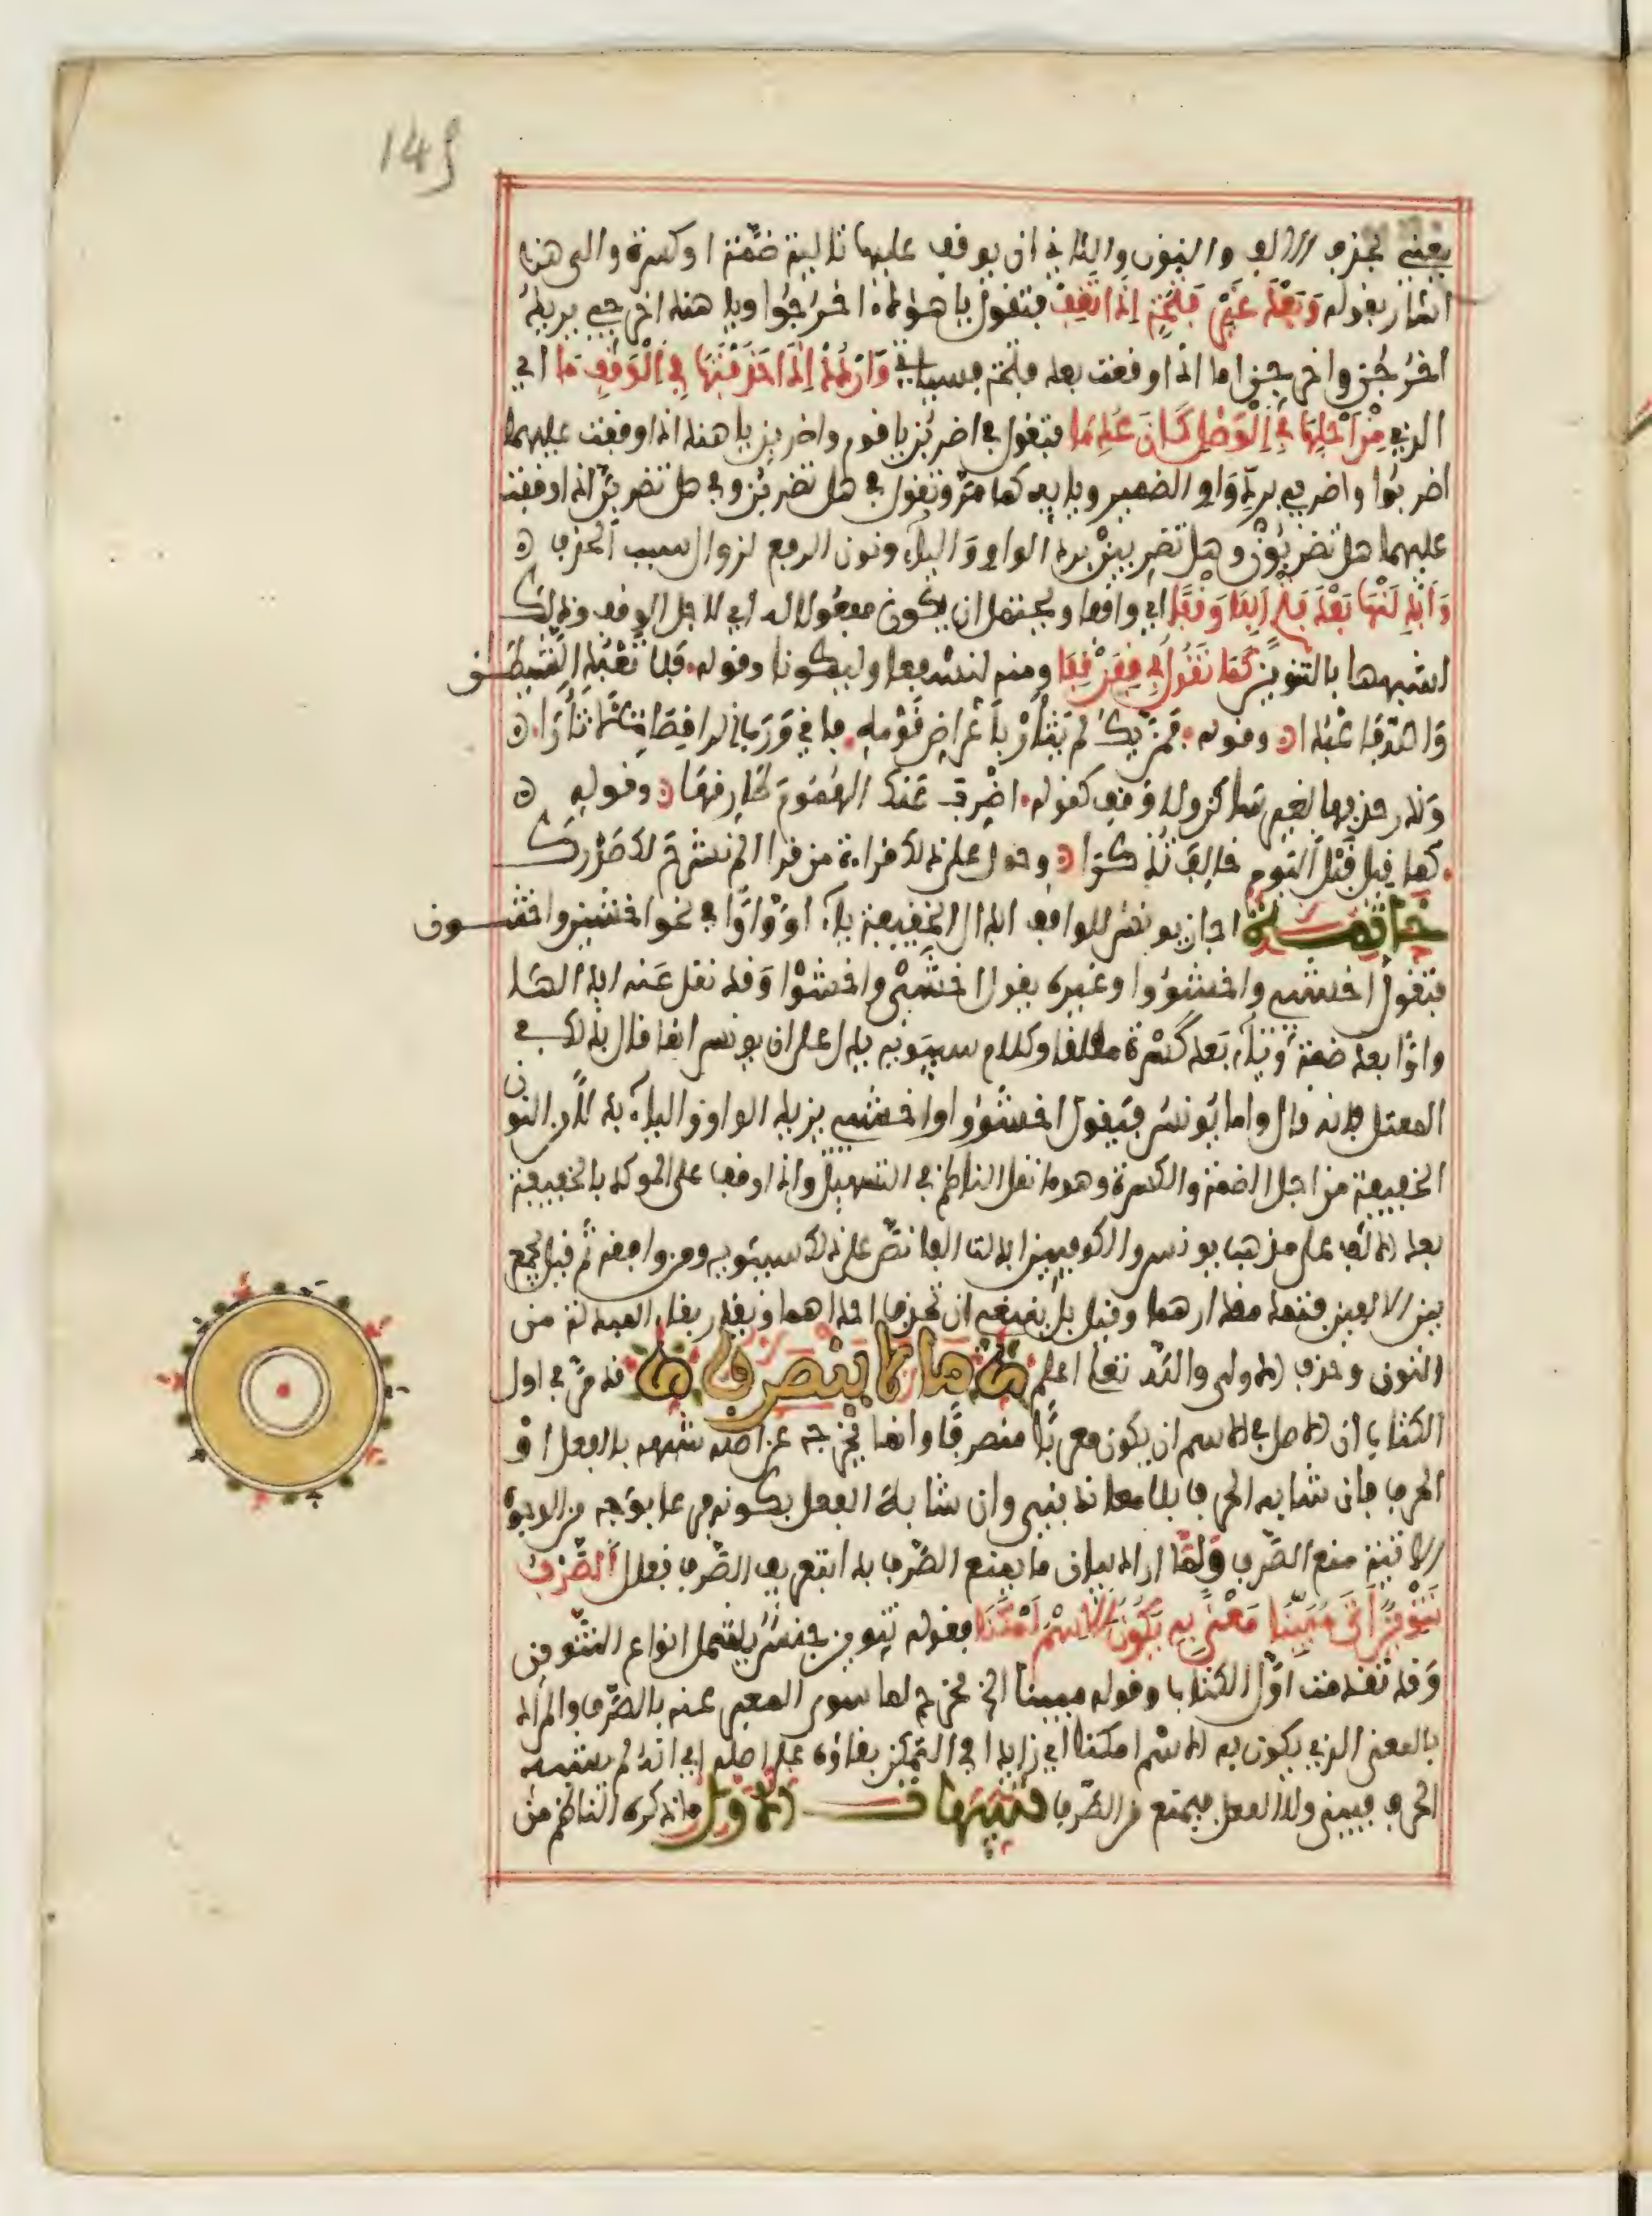 145
يعني بحذف الالف والنون والثاني ان يوقف عليها تالية ضمة او كسرة والى هذا
اشار بقوله وَبَعْدَ غَيْرِ فَتْحَةٍ إِذَا تَقِفْ فتقول يا هؤلاء اخرُجُوا ويا هذه اخرجي بريد
اخرُجُن واخرجِن اما اذا وقفت بعد فتحة فسياتي وَارْدُدْ إِذَا حَذَفْتَهَا فِي الْوَقْفِ مَا اي
الذي مِنْ اَجْلِهَا فِي الْوَصْلِ كَانَ عُدِمَا فتقول في اضربُن يا قوم واضربِن يا هذه اذا وقفت عليهما
اضربُوا واضربي برد وَاو الضمير ويايه كما مرّ وتقول في هل تضربُن وفي هل تضربِن اذا وقفت
عليهما هل تضربُونْ وهل تضربينْ برد الواو وَالياء ونون الرفع لزوال سبب الحذف ه
وَاَبْدِلَنْهَا بَعْدَ فَتْحٍ اَلِفَا وَقْفًا اي واقفا ويحتمل ان يكون مفعولا له اي لاجل الوقف وذلك
لشبهها بالتنوين كَمَا تَقُولُ فِي قِفَنْ قِفَا ومنه لنسفعا وليكونا وقوله ولا تَعْبُدِ الشيطان
وَاللّهَ فَاعْبُدَا ه وقوله فَمَن يَكُ لم يَثْأَرْ بأَعْرَاضِ قَوْمِهِ فاني وَرَبِّ الراقصات لَأَثْأَرَا ه
وَندر حذفها لغير ساكن ولا وَقف كقوله اضْرِبَ عَنكَ الهُمُومَ طَارِقَهَا ه وقوله ه
كما قيل قَبْلَ اليَوم خَالِفَ تُذْكَرَا ه وحمل على ذلك قراءة من قرا الم نشرحَ لك صَدْرَكَ
خاتمة اجاز يونس للواقف ابدال الخفيفة ياءً اوْ وَاوًا في نحو اخشين واخشون
فتقول اخشيي واخشوُوا وغيره يقول اخشَيْ واخشَوْا وَقد نقل عَنه ابدالها
واوًا بعد ضمة وَياءً بَعد كَسْرة مطلقا وكلام سيبويه يدل على ان يونس انما قال بذلك في
المعتل فانه قال واما يُونس فيقول اخشوُوا واخشيي يزيد الواو والياء بدلا من النون
الخفيفة من اجل الضمة والكسرة وهو ما نقل الناظم في التسهيل واذا وقف على الموكد بالخفيفة
بعد الالف على مذهب يونس والكوفيين ابدلت الفا نصّ على ذلك سيبويه ومن وافقه ثم قيل يجمع
بين الالفين فتمد مقدارهما وقيل بل ينبغي ان تحذف احداهما ويقدر بقاء المبدلة من
النون وحذف الاولى والله تعلى اعلم ما لا ينصرف قد مرّ في اول
الكتاب ان الاصل في الاسم ان يكون معربًا منصرفًا وانما يخرجه عن اصله شبهه بالفعل اوْ
الحرف فان شابه الحرف بلا معاند بني وان شابه الفعل بكونه فرعا بوجه من الوجوه
الاتية منع الصّرف وَلمّا اراد بيان ما يمنع الصّرف بدا بتعريف الصّرف فقال الصَّرْفُ
تَنْوِينٌ اَتَى مُبَيِّنَا مَعْنًى بِهِ يَكُونُ الِاسْمُ اَمْكَنَا فقوله تنوين جنسٌ يشمل انواع التنوين
وَقد تقدمت اوّل الكتاب وقوله مبينا الخ مخرج لما سوى المعبر عنه بالصّرف والمراد
بالمعنى الذي يكون به الاسْم امكنا اي زايدا في التمكن بقاؤه على اصله اي انه لم يشبه
الحرف فيبنى ولا الفعل فيمنع من الصّرف تنبيهات الاول ما ذكره الناظم من